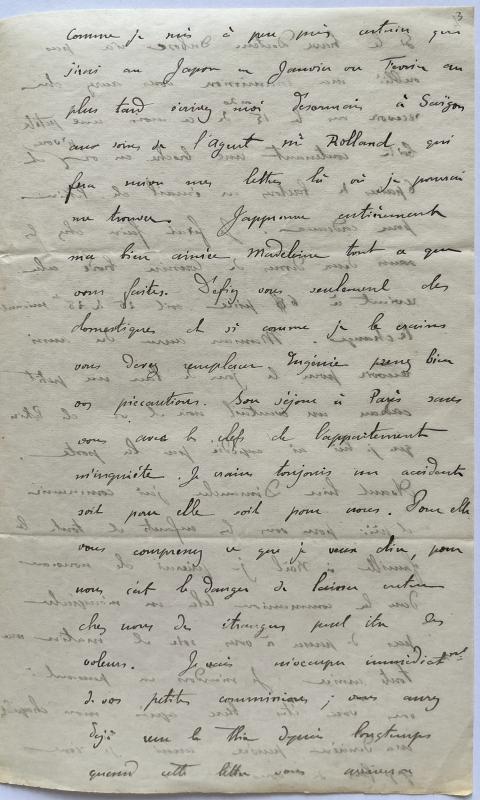 3
Comme je suis à peu près certain que
j'irai au Japon en Janvier ou Février au
plus tard écrivez moi désormais à Saïgon
aux soins de l'Agent Mr Rolland qui
fera suivre mes lettres là où je pourrai
me trouver. J'approuve entièrement
ma bien aimée Madeleine tout ce que
vous faites. Défiez vous seulement des
domestiques et si comme je le crains
vous devez remplacer Ingénie prenez bien
vos précautions. Son séjour à Paris sans
vous avec les clefs de l'appartement
m'inquiète. Je crains toujours un accident
soit pour elle soit pour nous. Pour elle
vous comprenez ce que je veux dire, pour
nous c'est le danger de laisser entrer
chez nous des étrangers peut être des
voleurs. Je vais m'occuper immédiatement
de vos petites commissions ; vous aurez
déjà reçu le thé depuis longtemps
quand cette lettre vous arrivera